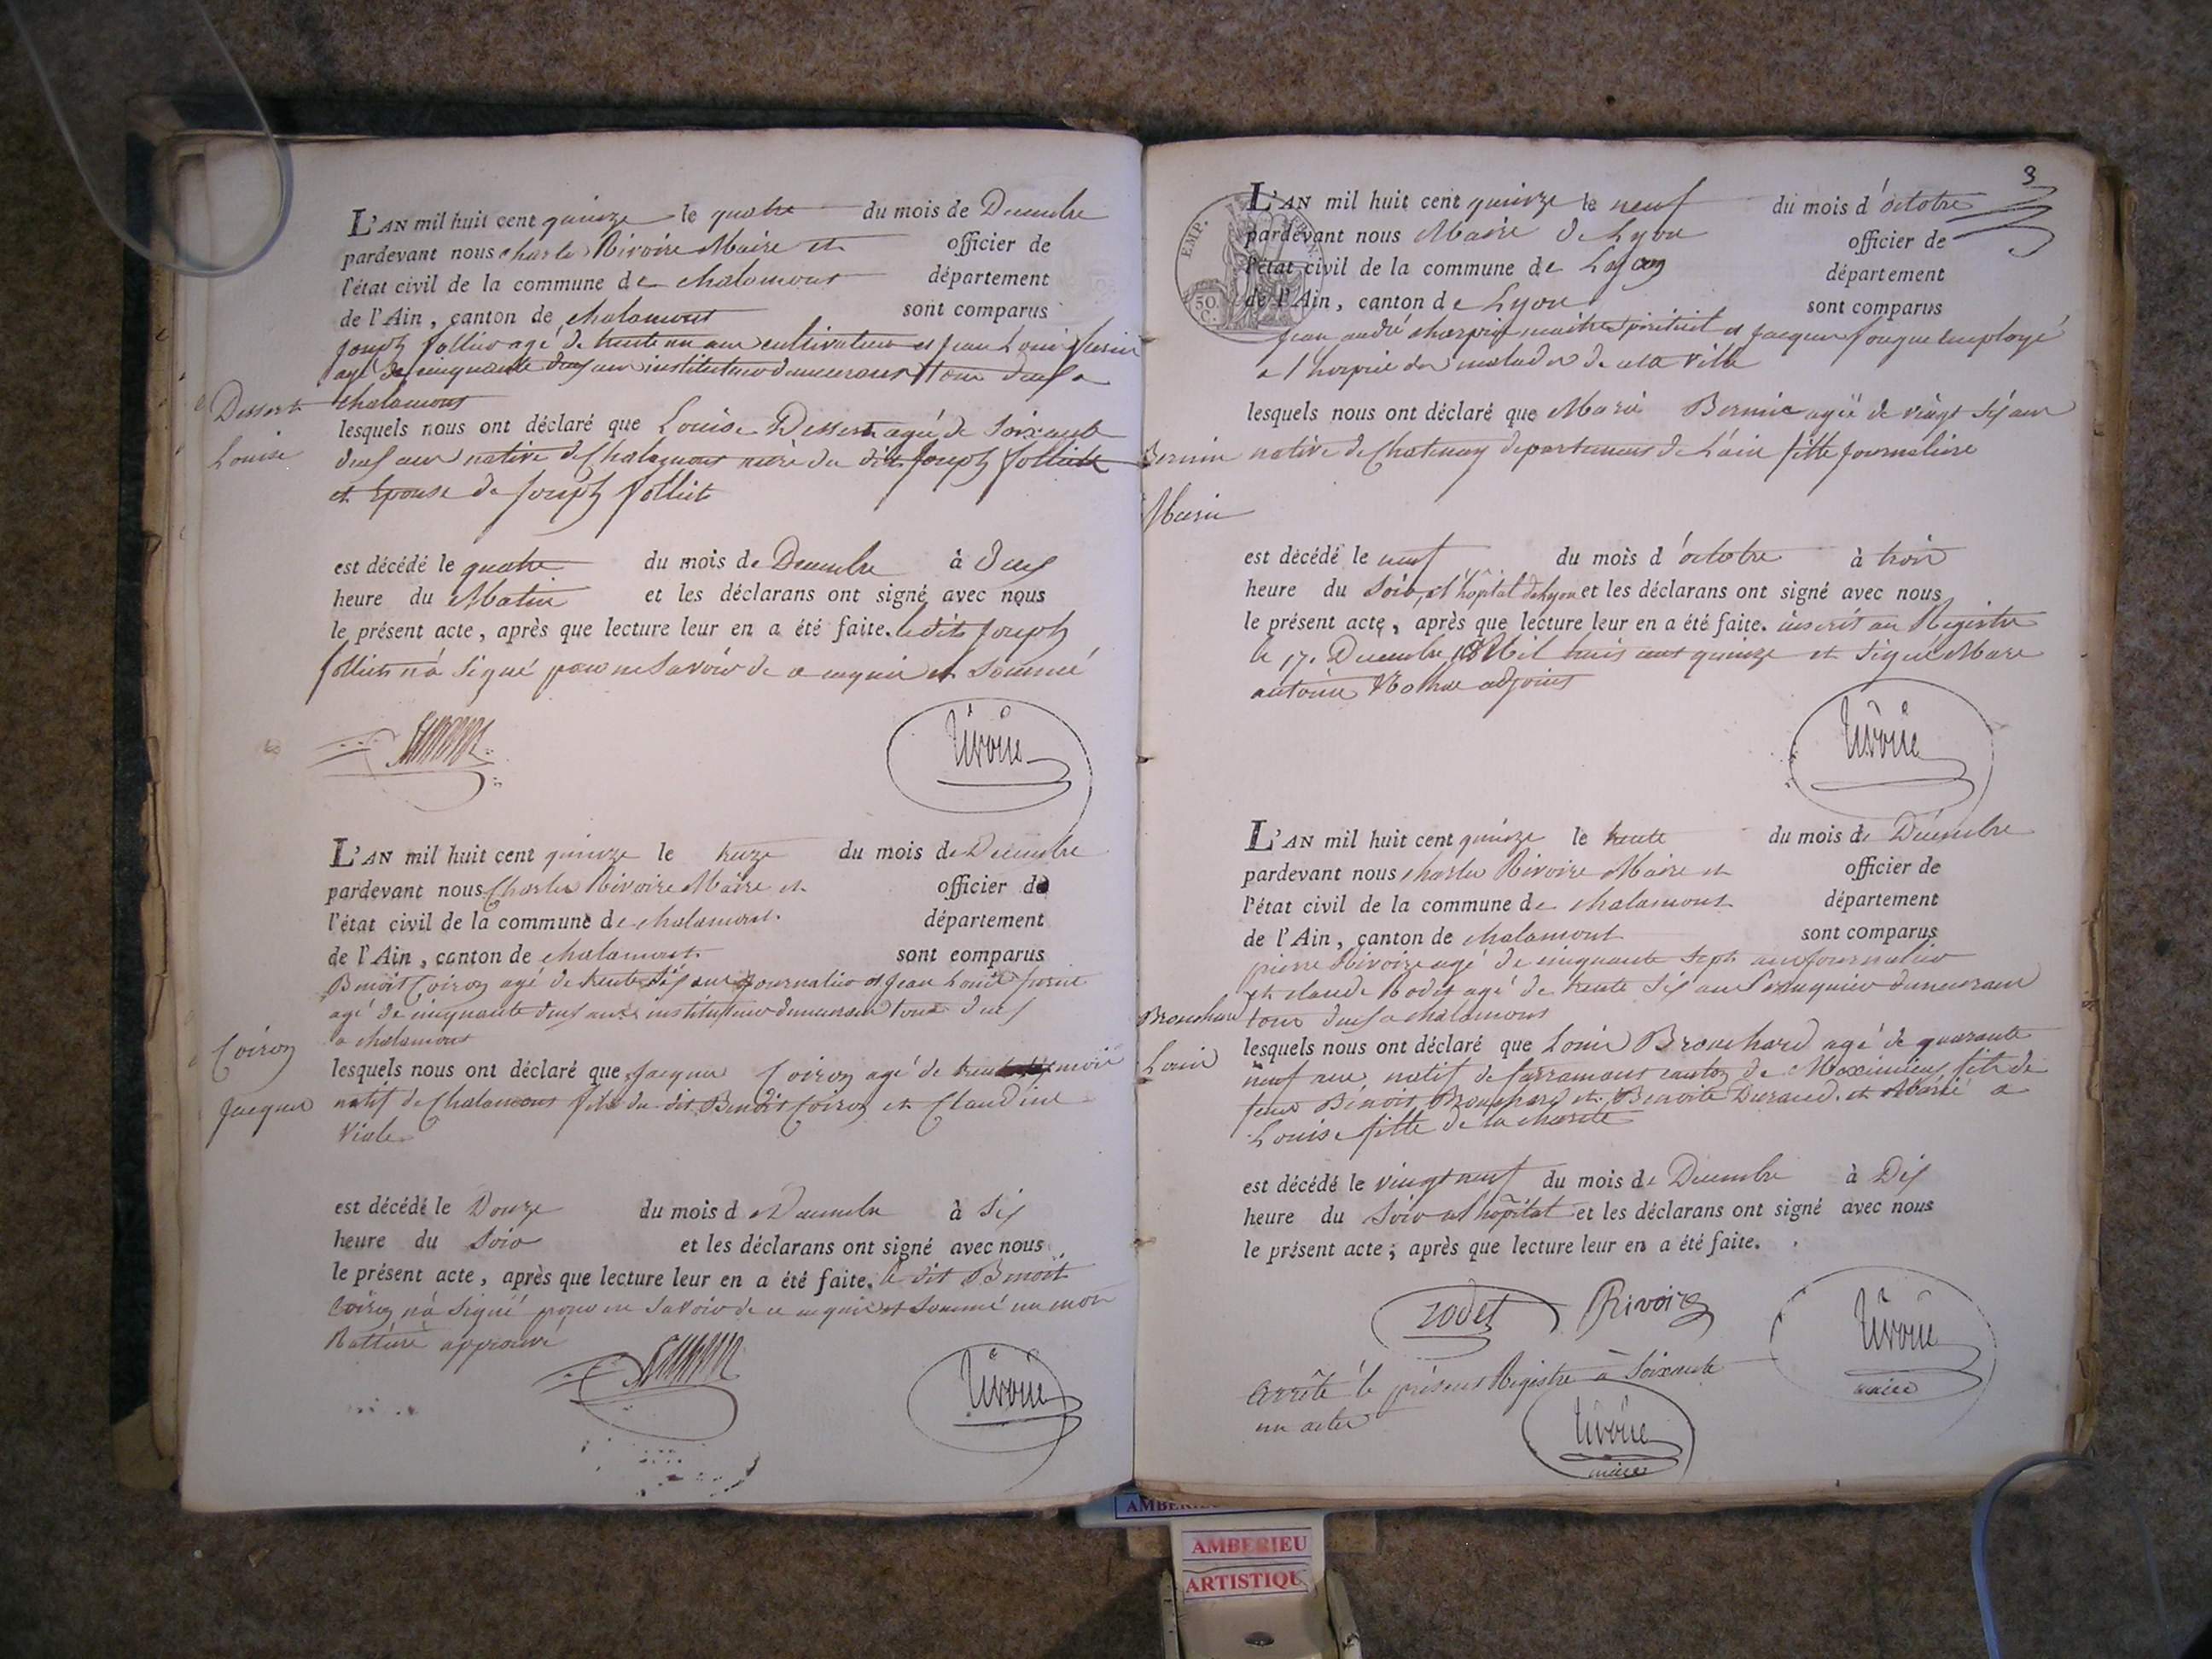 L'AN mil huit cent quinze le quatre du mois de Decembre
pardevant nous charles Rivoire Maire et officier de
l'état civil de la commune de chalamont département
de l'Ain, canton de chalamont sont comparus
joseph follict agé de trente un ans cultivateur et jean Louis
agé de cinquante deux ans instituteur demeurant tous deux a
chalamont
Dessert
lesquels nous ont déclaré que Louise Dessert agée de soixante
Louise
deux ans native de Chalamont mère du dit joseph follict
et Epouse de joseph follict
est décédé le quatre du mois de Decembre à deux
heure du Matin et les déclarans ont signé avec nous
le présent acte, après que lecture leur en a été faite. le dit joseph
follict n'a signé pour ne savoir de ce enquis et sommé
Rivoire
L'AN mil huit cent quinze le treize du mois de Decembre
pardevant nous Charles Rivoire Maire et officier de
l'état civil de la commune de chalamont. département
de l'Ain, canton de chalamont sont comparus
Benoit Coiron agé de trente six ans journalier et jean Louis
agé de cinquante deux ans instituteur demeurant tous deux
a chalamont
Coiron
lesquels nous ont déclaré que jacques Coiron agé de mois
Jacques
natif de Chalamont fils du dit Benoit Coiron et Claudine
Viale
est décédé le Douze du mois d Decembre à six
heure du soir et les déclarans ont signé avec nous
le présent acte, après que lecture leur en a été faite. le dit Benoit
Coiron n'a signé pour ne savoir de ce enquis et sommé un mot
Batturé approuvé
Rivoire
3
EMP.
50 C.
L'AN mil huit cent quinze le neuf du mois d'octobre
pardevant nous Maire de Lyon officier de
l'état civil de la commune de Lyon département
de l'Ain, canton de Lyon sont comparus
jean andré charpin maitre et jacques fougue Employé
a l'hospice des malades de cette ville
lesquels nous ont déclaré que Marie Bernin agée de vingt six ans
Bernin
native de Chatenay departement de l'ain fille journaliere
Marie
est décédé le neuf du mois d'octobre à trois
heure du soir, à l'hopital de Lyon et les déclarans ont signé avec nous
le présent acte, après que lecture leur en a été faite. inscrit au Registre
le 17. Decembre Mil huit cent quinze et signé Marc
antoine adjoint
Rivoire
L'AN mil huit cent quinze le trente du mois de Décembre
pardevant nous charles Rivoire Maire et officier de
l'état civil de la commune de chalamont département
de l'Ain, canton de chalamont sont comparus
pierre Rivoire agé de cinquante sept ans journalier
et claude Rodet agé de trente six ans Perruquier demeurant
Brouchard
tous deux a chalamont
lesquels nous ont déclaré que Louis Brouchard agé de quarante
Louis
neuf ans natif de canton de Maximieux fils de
feus Benoit Brouchard et Benoite Durand. et Marié a
Louise fille de la charité
est décédé le vingt neuf du mois de Decembre à Dix
heure du soir à l'hôpital et les déclarans ont signé avec nous
le présent acte; après que lecture leur en a été faite.
rodet Rivoire Rivoire
maire
Arrêté le présent Registre à soixante
un actes
Rivoire
maire
AMBERIEU
ARTISTIQU